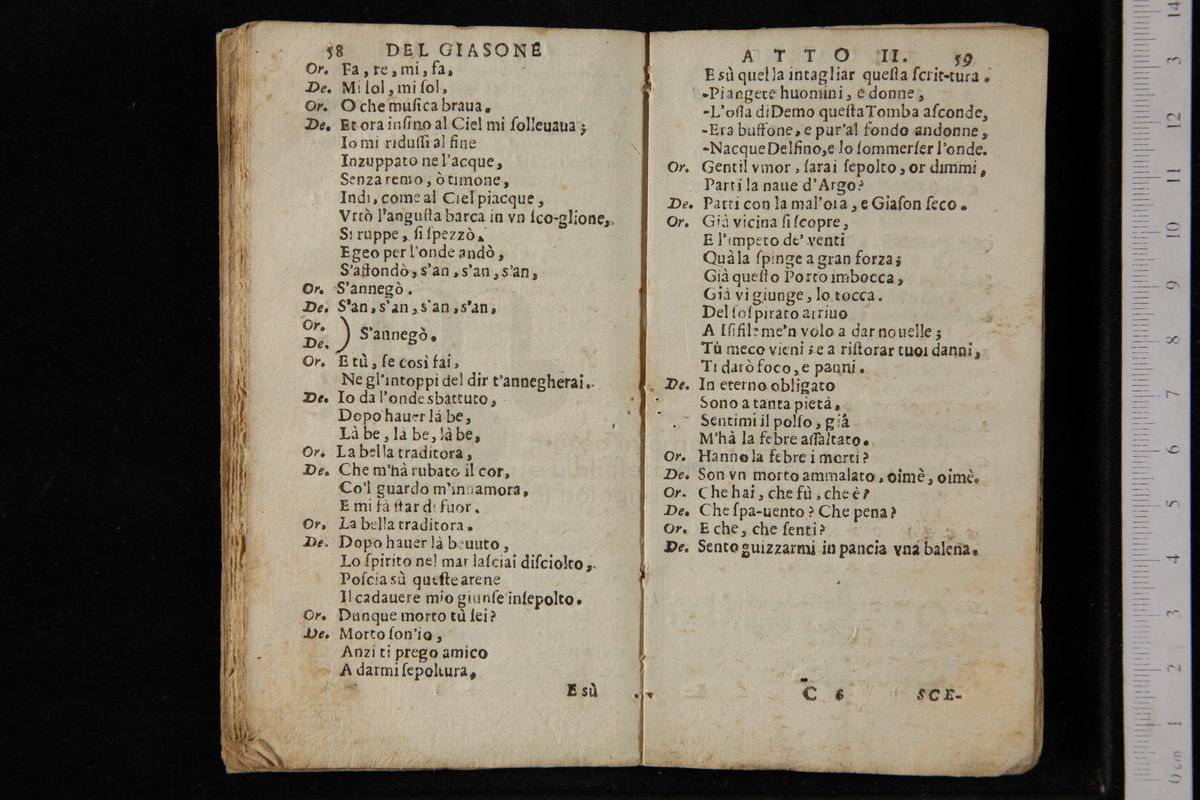 58 DEL GIASONE
Or. Fa, re, mi, fa,
De. Mi ſol, mi ſol,
Or. O che muſica braua.
De. Et ora inſino al Ciel mi ſolleuaua;
Io mi riduſſi al fine
Inzuppato ne l'acque,
Senza remo, ò timone,
Indi, come al Ciel piacque,
Vrtò l'anguſta barca in vn ſco-glione,
Si ruppe, ſi ſpezzò,
Egeo per l'onde andò,
S'affondò, s'an, s'an, s'an,
Or. S'annegò.
De. S'an, s'an, s'an, s'an,
Or.
De. ) S'annegò.
Or. E tù, ſe così fai,
Ne gl'intoppi del dir t'annegherai.
De. Io da l'onde sbattuto,
Dopo hauer là be,
Là be, là be, là be,
Or. La bella traditora,
De. Che m'hà rubato il cor,
Co'l guardo m'innamora,
E mi fà ſtar di fuor.
Or. La bella traditora.
De. Dopo hauer là beuuto,
Lo ſpirito nel mar laſciai diſciolto,
Poſcia sù queſte arene
Il cadauere mio giunſe inſepolto.
Or. Dunque morto tù ſei?
De. Morto ſon'io,
Anzi ti prego amico
A darmi ſepoltura,
E sù
ATTO II. 59
E sù quella intagliar queſta ſcrit-tura.
-Piangete huomini, e donne,
-L'oſſa di Demo queſta Tomba aſconde,
-Era buffone, e pur'al fondo andonne,
-Nacque Delfino, e lo ſommerſer l'onde.
Or. Gentil vmor, ſarai ſepolto, or dimmi,
Partì la naue d'Argo?
De. Partì con la mal'ora, e Giaſon ſeco.
Or. Già vicina ſi ſcopre,
E l'impeto de' venti
Quà la ſpinge a gran forza;
Già queſto Porto imbocca,
Già vi giunge, lo tocca.
Del ſoſpirato arriuo
A Iſifile me'n volo a dar nouelle;
Tù meco vieni, e a riſtorar tuoi danni,
Ti darò foco, e panni.
De. In eterno obligato
Sono a tanta pietà,
Sentimi il polſo, già
M'hà la febre aſſaltato.
Or. Hanno la febre i morti?
De. Son vn morto ammalato, oimè, oimè.
Or. Che hai, che fù, che è?
De. Che ſpa-uento? Che pena?
Or. E che, che ſenti?
De. Sento guizzarmi in pancia vna balena.
C 6 SCE-